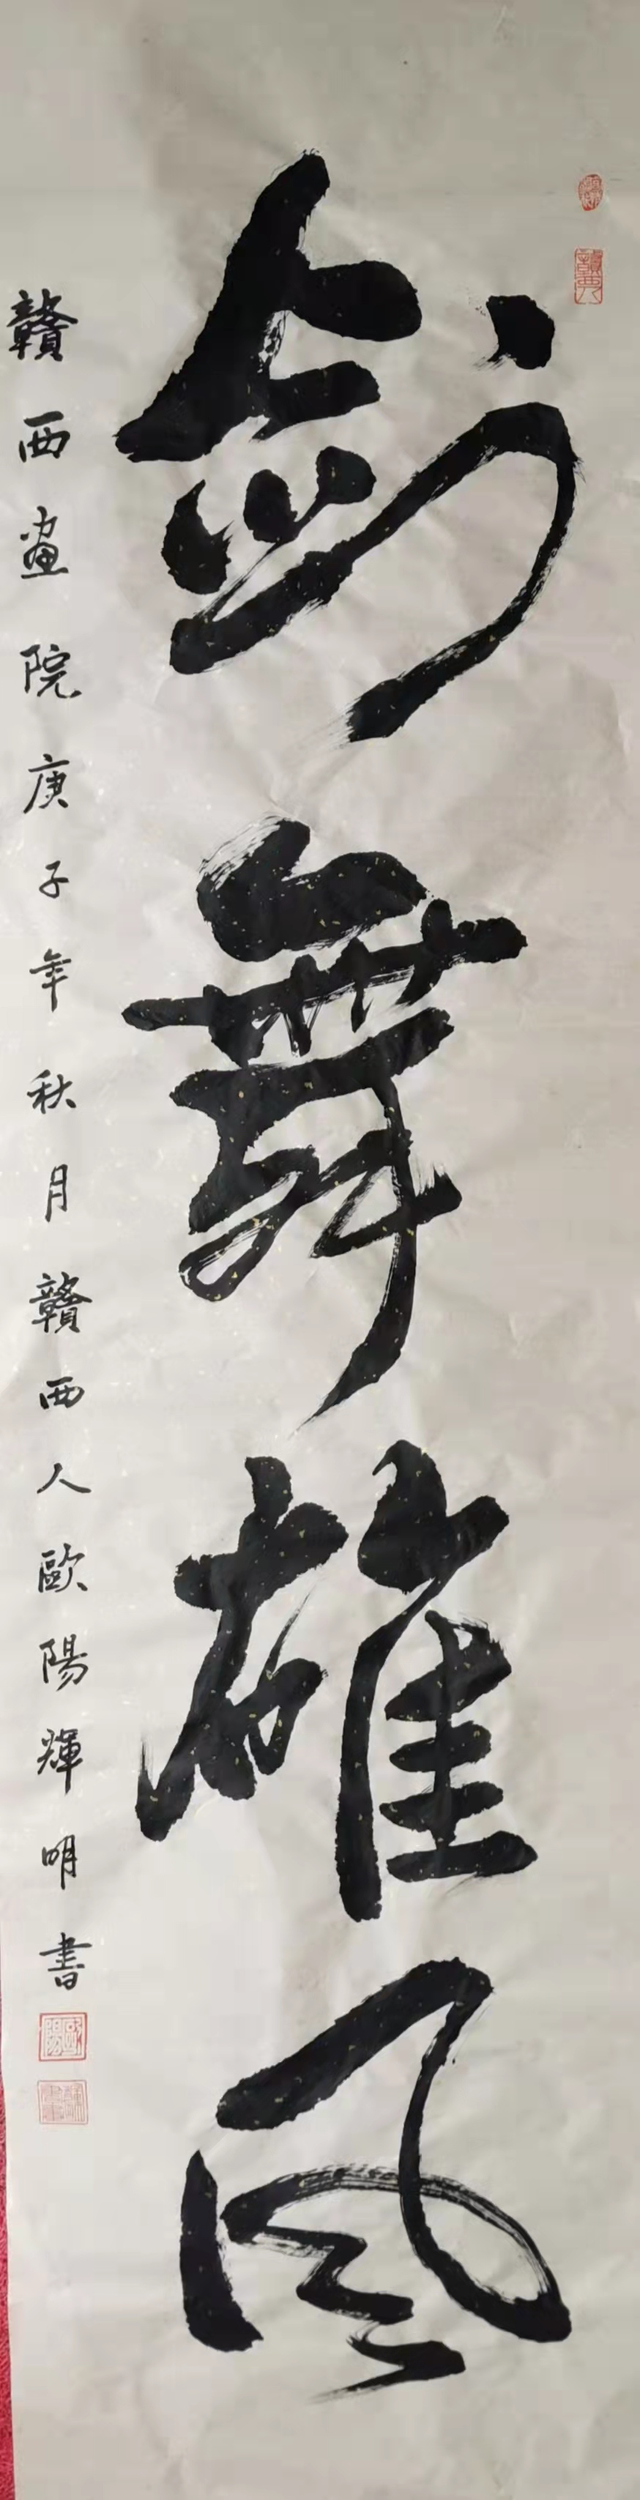 劍舞雄风
贛西畫院庚子年秋月贛西人歐陽輝明書